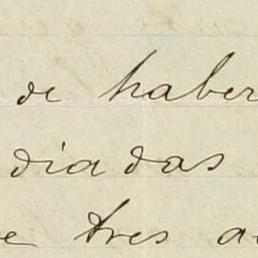 de haber
diadas
e tres a